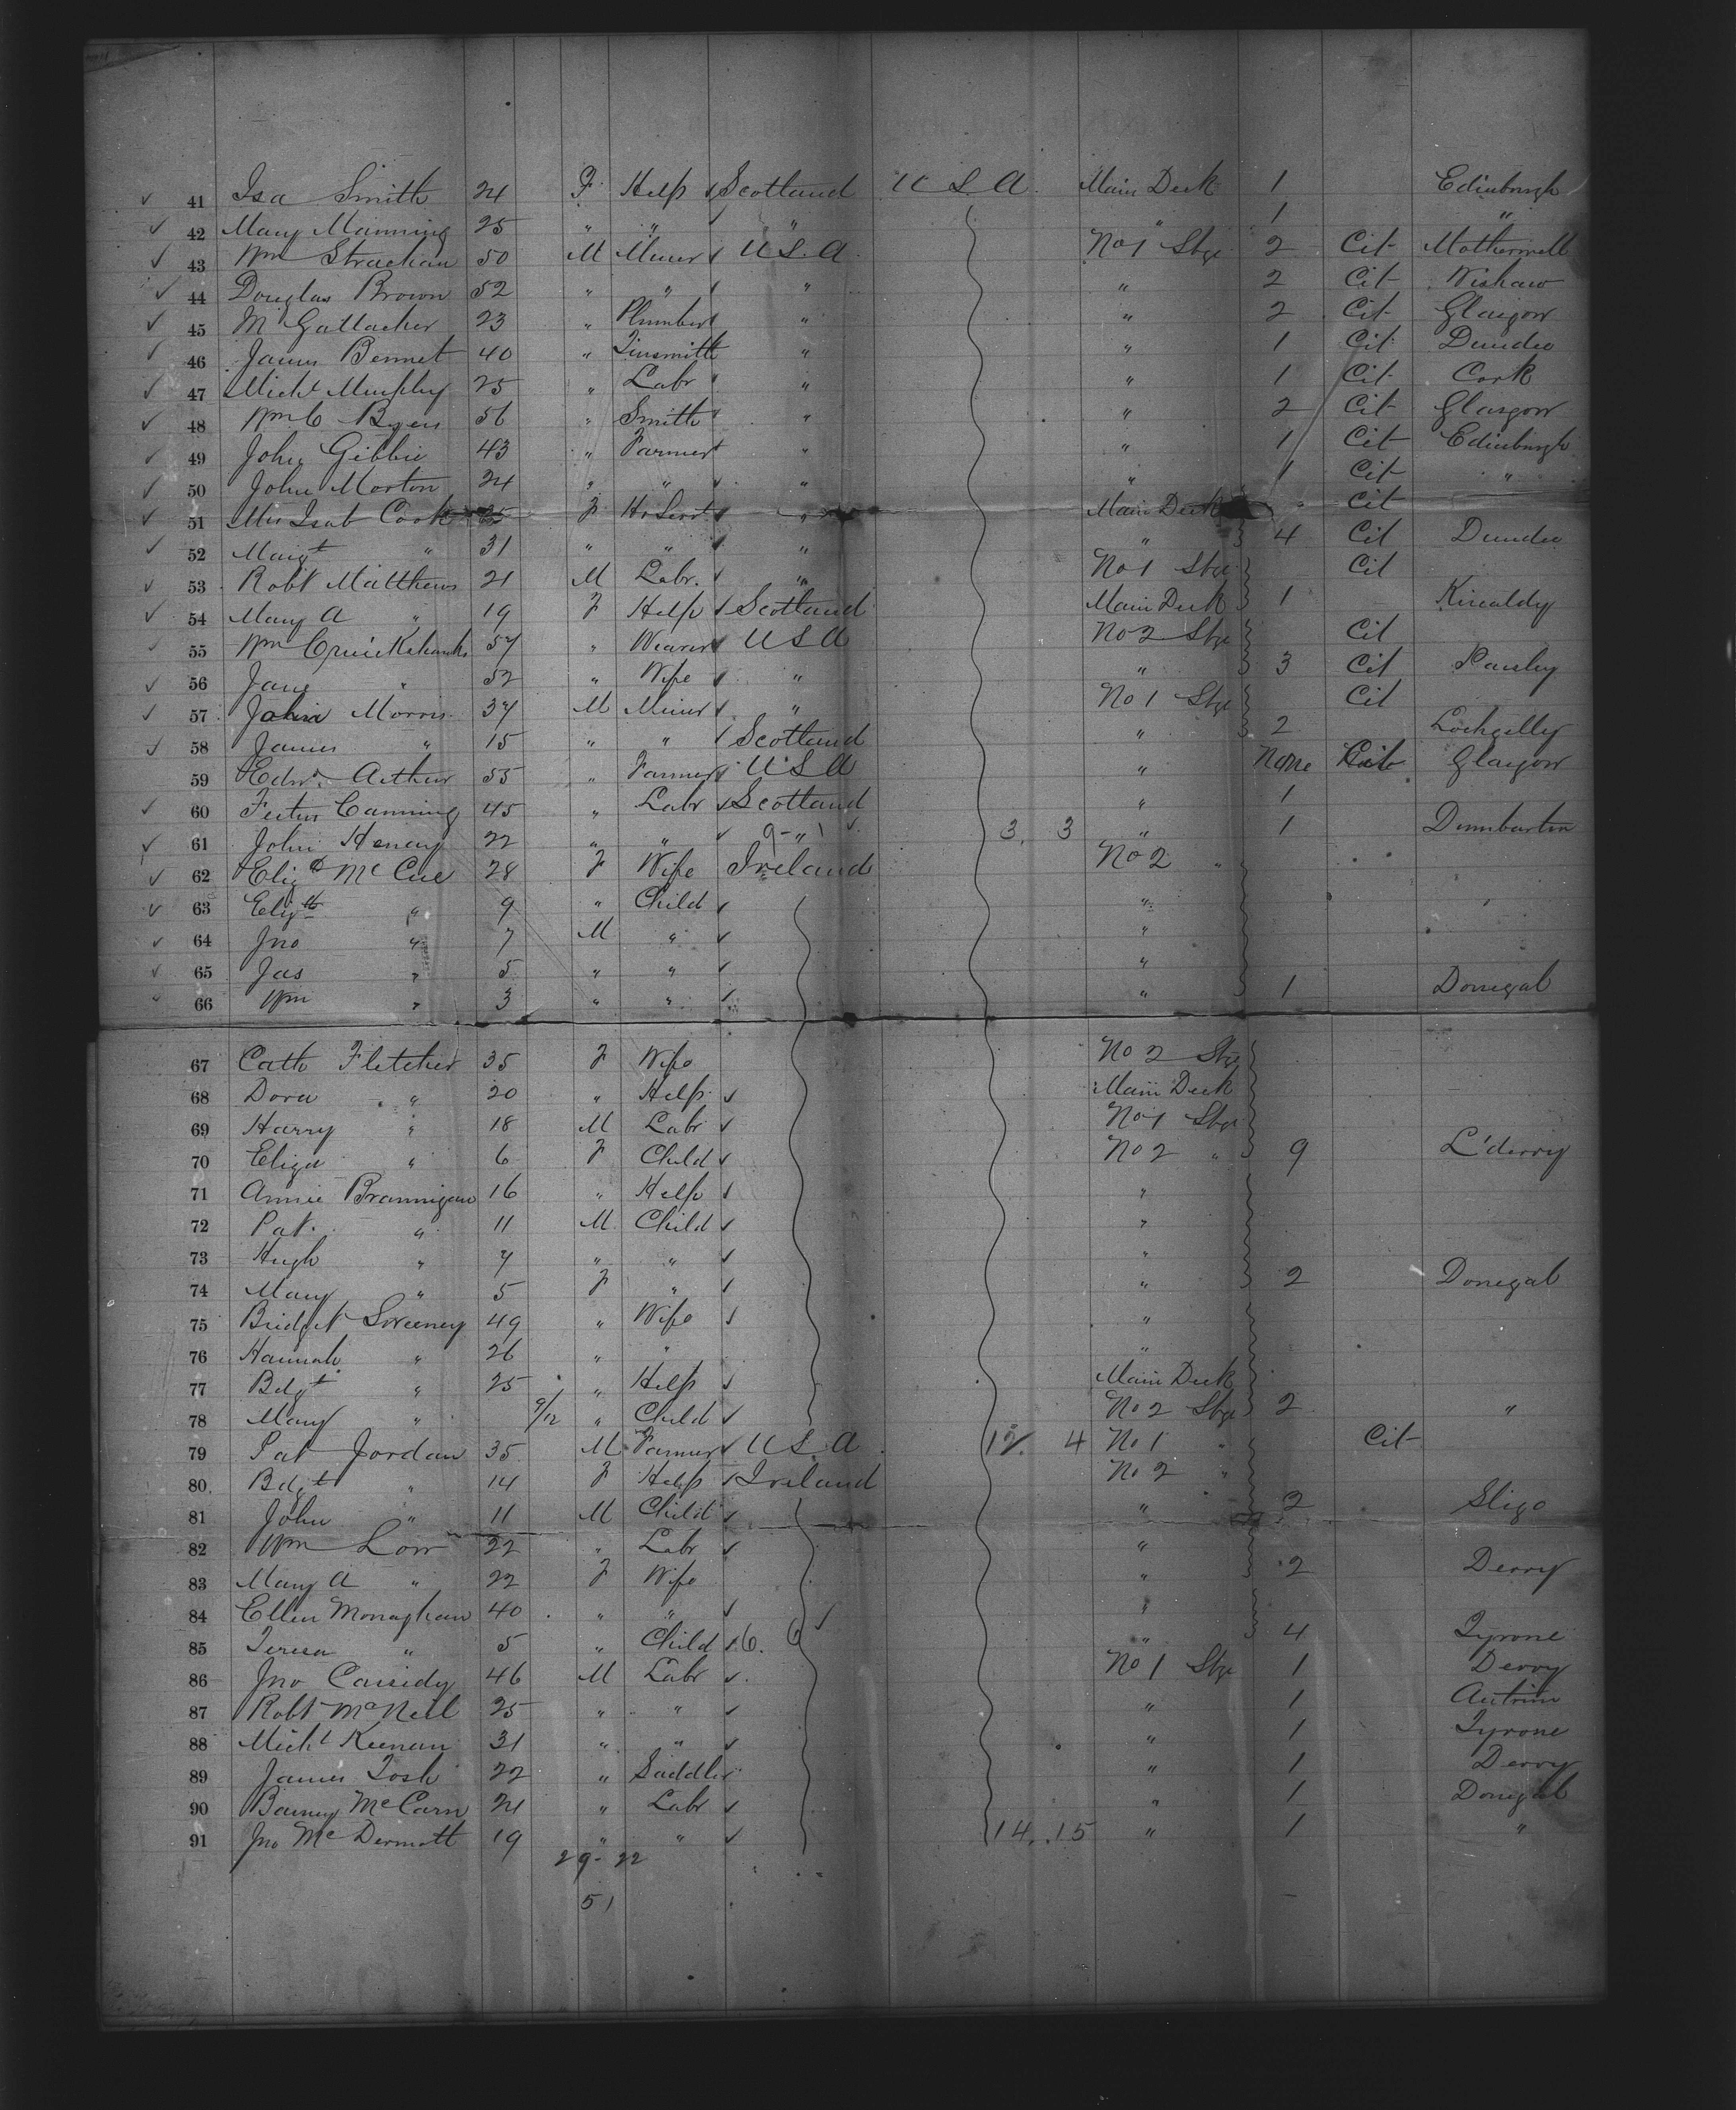 41 Isa Smith 24 F Help Scotland U S A Main Deck 1 Edinburgh
42 Mary Manning 25 " " " " 1 "
43 Wm Strachan 50 M Miner U S A No 1 Stge 2 Cit Motherwell
44 Douglas Brown 52 " " " " 2 Cit Wishaw
45 M Gallacher 23 " Plumber " " 2 Cit Glasgow
46 James Bennet 40 " Tinsmith " " 1 Cit Dundee
47 Michl Murphy 25 " Labr " " 1 Cit Cork
48 Wm C Byers 56 " Smith " " 2 Cit Glasgow
49 John Gibbie 43 " Farmer " " 1 Cit Edinburgh
50 John Morton 24 " " " " 1 Cit "
51 Mrs Isab Cook F " Main Deck Cit
52 Margt " 31 " " " " 4 Cit Dundee
53 Robt Matthews 21 M Labr. " No 1 Stge Cit
54 Mary A " 19 F Help Scotland Main Deck 1 Kircaldy
55 Wm Cruickshanks 57 " Weaver U S A No 2 Stge Cit
56 Jane " 52 " Wife " " 3 Cit Paisley
57 John Morris 37 M Miner " No 1 Stge Cit
58 James " 15 " " Scotland " 2 Lochgelly
59 Edwd Arthur 55 " Farmer U S A " None Cit Glasgow
60 Canning 45 " Labr Scotland " 1
61 John Henay 22 " " 9 - " 1 3. 3 " 1 Dumbarton
62 Elizth Mc Cue 28 F Wife Ireland No 2 "
63 Elizth " 9 " Child "
64 Jno " 7 M " "
65 Jas " 5 " " "
66 Wm " 3 " " " 1 Donegal
67 Cath Fletcher 35 F Wife No 2 Stge
68 Dora " 20 " Help Main Deck
69 Harry " 18 M Labr No 1 Stge
70 Eliza " 6 F Child No 2 " 9 L'derry
71 Annie Brannigan 16 " Help "
72 Pat. " 11 M Child "
73 Hugh " 7 " " "
74 Mary " 5 F " " 2 Donegal
75 Bridget Sweeney 49 " Wife "
76 Hannah " 26 " " "
77 Bdgt " 25 " Help Main Deck
78 Mary " 9/12 " Child No 2 Stge 2 "
79 Pat Jordan 35 M Farmer U S A 12. 4 No 1 " Cit
80 Bdgt " 14 F Help Ireland No 2 "
81 John " 11 M Child " 2 Sligo
82 Wm Low 22 " Labr "
83 Mary A " 22 F Wife " 2 Derry
84 Ellen Monaghan 40 " " "
85 Teresa " 5 " Child 6. 6 " 4 Tyrone
86 Jno Cassidy 46 M Labr No 1 Stge 1 Derry
87 Robt McNeil 25 " " " 1 Antrim
88 Michl Keenan 31 " " " 1 Tyrone
89 James Tosh 22 " Saddler " 1 Derry
90 Barney McCarn 21 " Labr " 1 Donegal
91 Jno McDermott 19 " " 14. 15 " 1 "
29 - 22
51